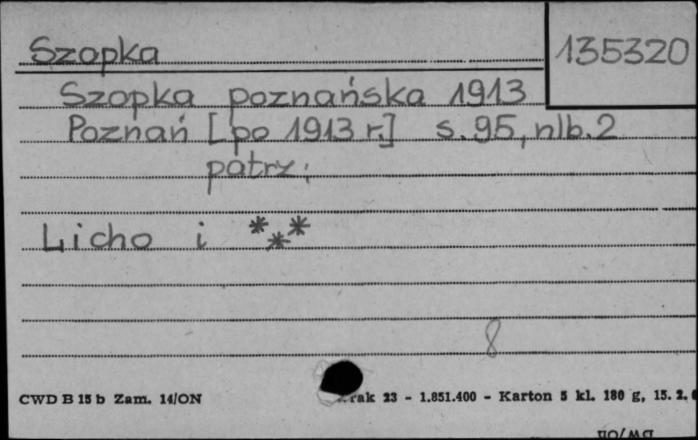 Szopka
135320
Szopka poznańska 1913
Poznań [po 1913 r.] s. 95, nlb. 2
patrz:
Licho i ***
8
CWD B 15 b Zam. 14/ON
rak 23 - 1.851.400 - Karton 5 kl. 180 g, 15. 2.